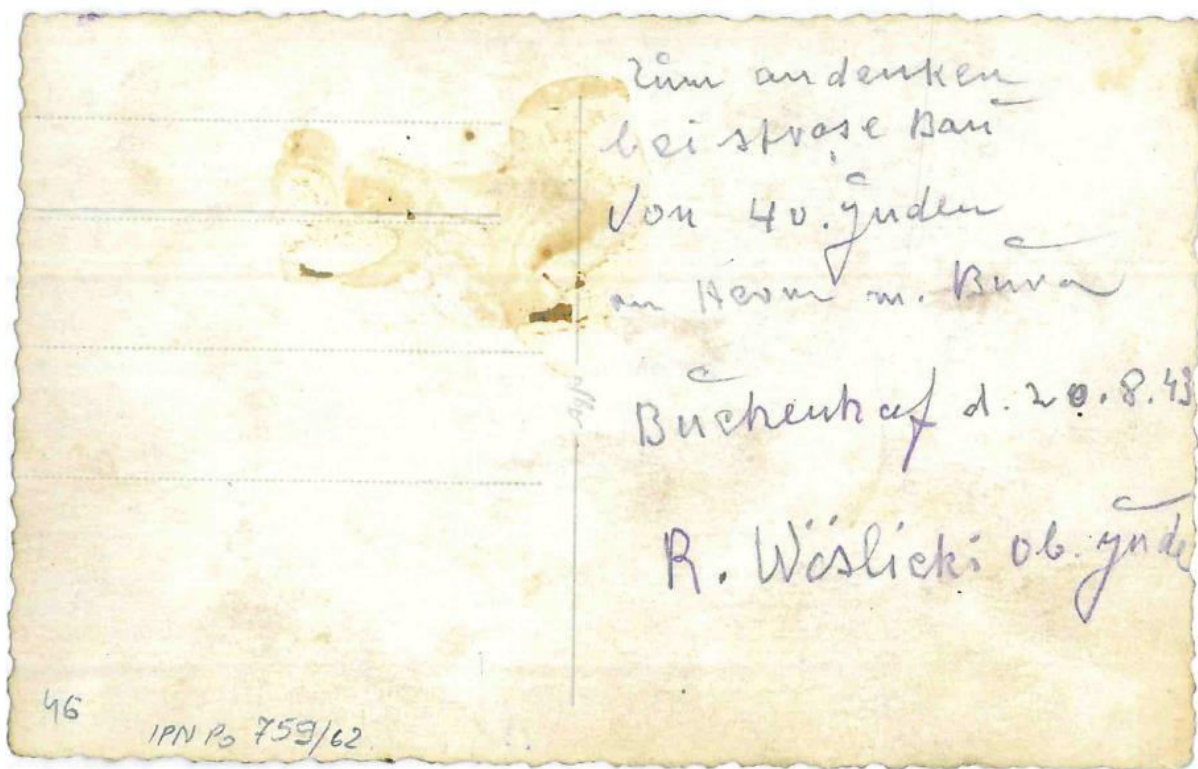 Zum andenken
bei strase Bau
Von 40. Juden
an Herrn m. Bura
Buchenhof d. 20.8.43
R. Wislicki ob. Jude
46
IPN Po 759/62